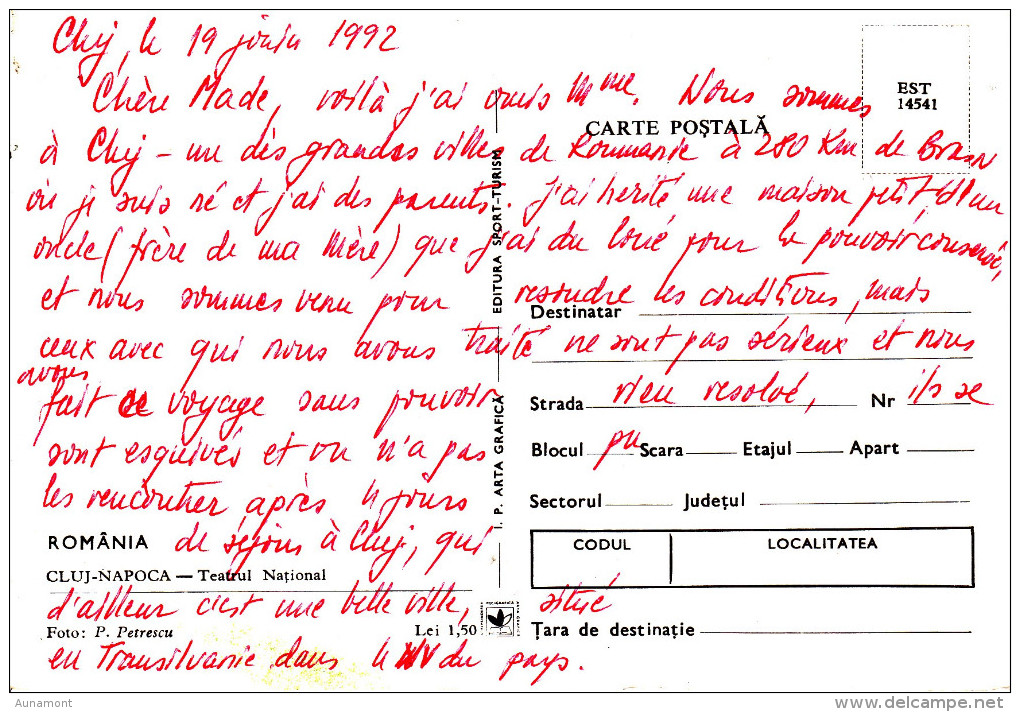 Cluj, le 19 juin 1992
Chère Made, voilà j'ai omis Mme. Nous sommes
EST
14541
CARTE POȘTALĂ
à Cluj – un des grandes villes de Roumanie à 280 Km de Brasov
où je suis né et j'ai des parents. J'ai herité une maison d'un
oncle (frère de ma mère) que j'ai du loué pour la pouvoir conservé,
et nous sommes venu pour resoudre les conditions, mais
Destinatar
ceux avec qui nous avons traité ne sont pas sérieux et nous
avons
fait ce voyage sans pouvoir rien resolvé, ils se
Strada Nr
sont esquivés et on n'a pas pu
Blocul Scara Etajul Apart
les rencontrer après 4 jours
Sectorul Județul
ROMÂNIA de séjour à Cluj, qui
CODUL LOCALITATEA
CLUJ-NAPOCA — Teatrul Național
d'ailleur c'est une belle ville, situé
Foto: P. Petrescu Lei 1,50
Țara de destinație
en Transilvanie dans le NV du pays.
I. P. ARTA GRAFICĂ EDITURA SPORT-TURISM
Aunamont
delcampe.net